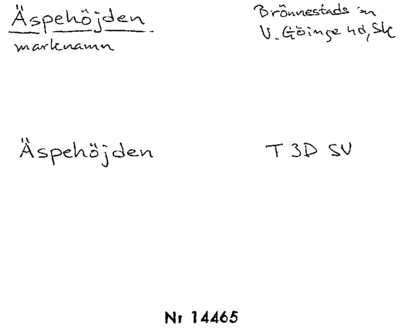 Äspehöjden
marknamn
Brönnestads sn
V. Göinge hd, Sk
Äspehöjden
T 3D SV
Nr 14465